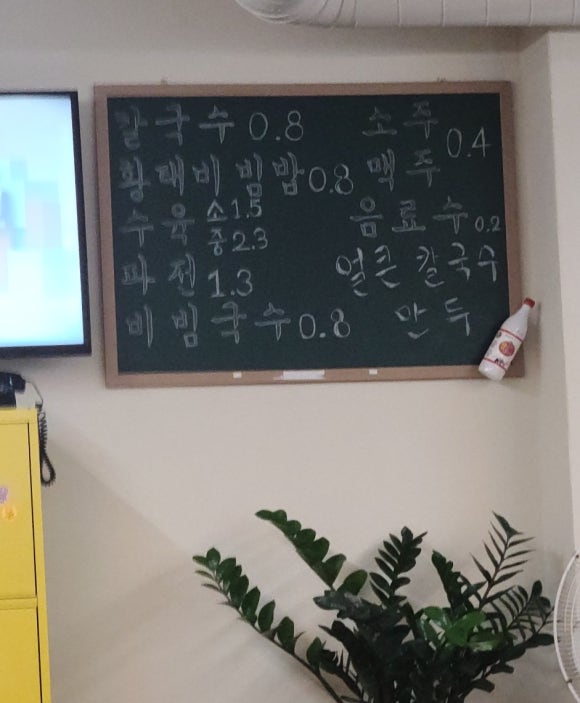 칼국수 0.8
황태비빔밥 0.8
수육 소 1.5
중 2.3
파전 1.3
비빔국수 0.8
소주
맥주 0.4
음료수 0.2
얼큰칼국수
만두